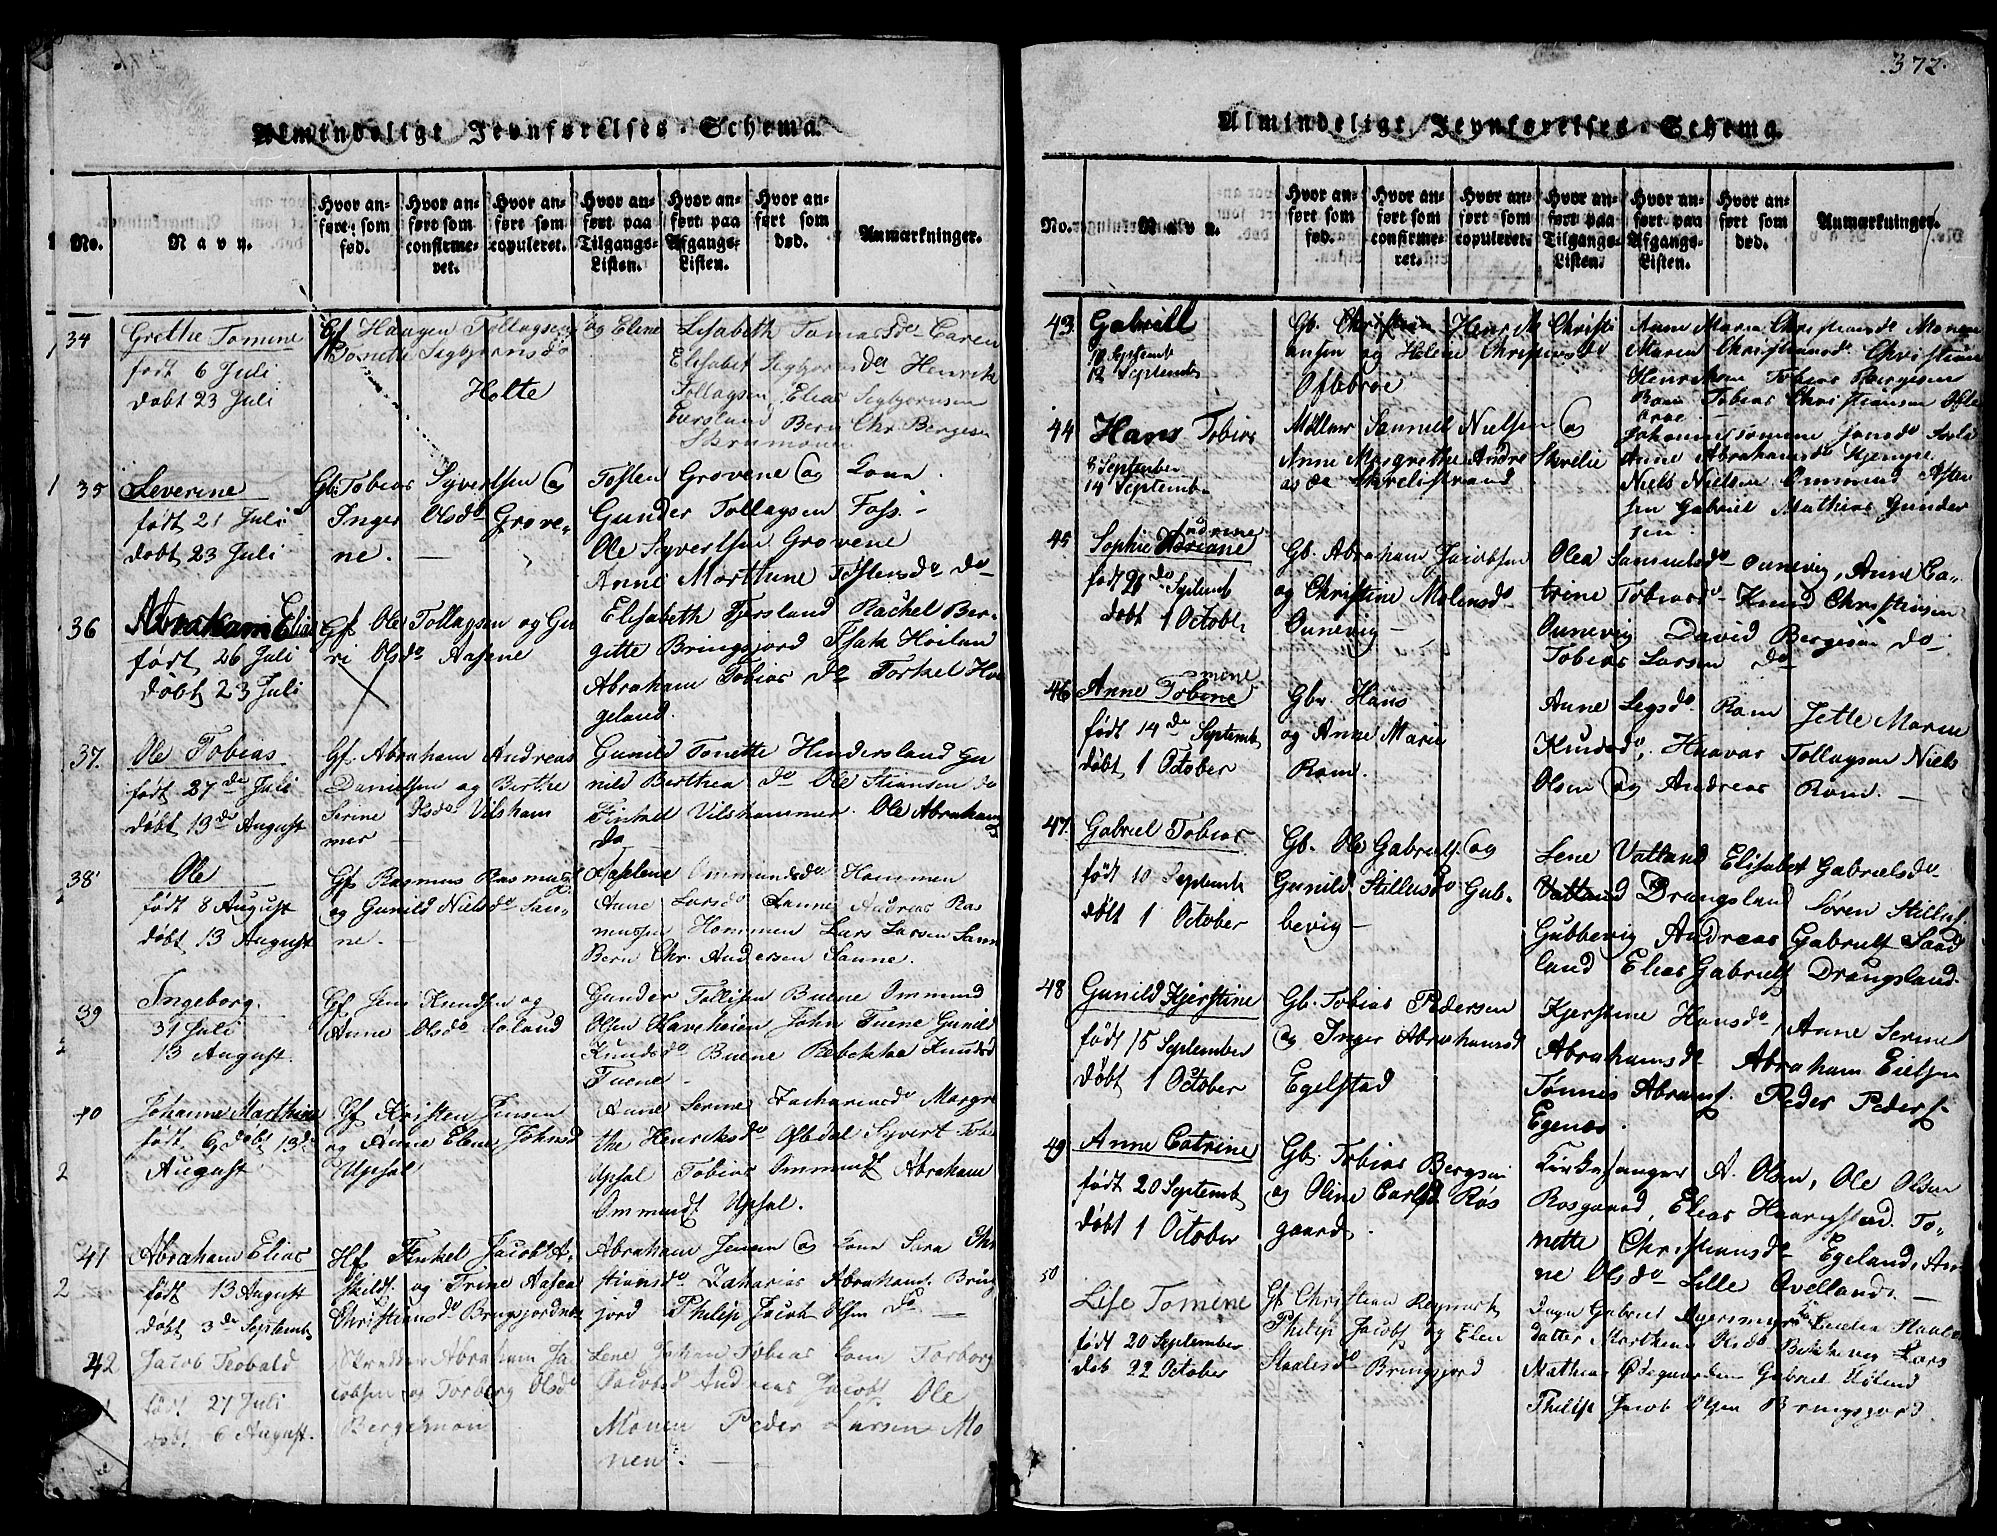 Almindeligt Jevnførelses-Schema.
No.
Navn.
Hvor anført som født.
Hvor anført som confirmeret.
Hvor anført som copuleret.
Hvor anført paa Tilgangs-Listen.
Hvor anført paa Afgangs-Listen.
Hvor anført som død.
Anmærkninger.
34 Grethe Tomine
født 6 Juli
døbt 23 Juli
Gf Haagen Tollagsen og Elene
Segbjornsdr
Holte
Lisabeth Tomasdr Caren
Elisabet Segbjornsdr Henrik
Tollagsen Elias Segbjornsen
Bern Chr. Bergesen
35 Severine
født 21 Juli
døbt 23 Juli
Gb. Tobias Syvertsen og
Inger Olsdr Grove-
ne. —
Tosten Grovene og Kona
Gunder Tollagsen Foss. —
Ole Syvertsen Grovene
Anne Marthine Tostensdr do
36 Abraham Elias
født 26 Juli
døbt 23 Juli
Gf. Ole Tollagsen og Gu
ri Olsdr Aasene
Elisabeth Fjersland Rachel Ber-
gitte Bringsjord Isak Hoiland
Abraham Tobias do Torkel Ho
geland.
37. Ole Tobias
født 27de Juli
døbt 13de August
Gf. Abraham Andreas
Danielsen og Berthe
Serine Olsdr Vilsham
mer —
Gunild Tonette Hindersland Gu
nild Berthea do Ole Stiansen do
Vilshammer. Ole Abraham
do
38 Ole
født 8 August
døbt 13 August
Gf. Rasmus Rasmus
og Gunild Nielsdr San-
ne. —
Ommundsdr Hommen
Anne Larsdr Sanne Andreas Ras
musen Hommen Lars Larsen Sanne
Bern Chr. Andersen Sanne.
39 Ingeborg.
31 Juli
13 August.
Gf Jens Knudsen og
Anne Olsdr
Gunder Tollisen Buene Ommund
Olsen John Tuene Gunild
Knudsdr Buene Rebekka Knudsdr
Tuene —
40 Johanne Marthine
født 6, døbt 13de
August
Gf Kristen Jensen
og Anne Elene Johnsd
Upsal
Anne Serine Zachariasdr Margre
the Henriksdr Ofsdal Syvert Tobi
Upsal Tobias Ommunds Abraham
Ommunds Upsal.
41 Abraham Elias
født 13 August
døbt 3de Septemb
Hf. Jacob A.
og Trine Aasea
Christiansdr Bringsjordnes
Abraham Jensen og Kona Sara Chr
stiansdr Zakarias Abrahams. Bring
jord Philip Jacob Olsen do —
42 Jacob Teobald
født 27 Juli
døbt 6 August.
Skredder Abraham Ja
cobsen og Torborg Olsdr
Bergemoen
Lene Johan Tobias Kona Torborg
Jacobsdr Andreas Jacobs Ole
Monen Peder Larsen Mo
nen. —
372.
Almindeligt Jevnførelses-Schema.
No.
Navn.
Hvor anført som født.
Hvor anført som confirmeret.
Hvor anført som copuleret.
Hvor anført paa Tilgangs-Listen.
Hvor anført paa Afgangs-Listen.
Hvor anført som død.
Anmærkninger.
43. Gabriell
10 Septemb
12 Septemb
Gb. Henrik Christi
ansen og Helene Christiansdr
Oftebroe
Anne Maria Christiansdr Monen
Maren Christiansdr Christian
Henriksen Tobias Bergesen
Rom Tobias Christiansen Ofte
broe —
44 Hans Tobias
8 September
14 Septemb.
Møller Samuel Nielsen og
Anne Margrethe Andre
asdr
Johanne Tomine Jonsdr
Anne Abrahamsdr
Niels Nielsen Ommund Aslak
sen Gabriel Mathias Gunder
sen
45 Sophie Andrine
født 26de Septemb
døbt 1 Octobr
Gb. Abraham Jacobsen
og Christine Malensdr
Ounevig —
Olea Samuelsdr Ounevig, Anne Ca-
trine Tobiasdr Knud Christensen
Ounevig David Bergesen do —
Tobias Larsen do
46 Anne Tomine
født 14de Septemb
døbt 1 October
Gbr. Hans
og Anne Marie
Rom.
Anne Legsdr. Rom Jette Maren
Knudsdr, Haavar Tollagsen Niels
Olsen og Andreas Rom. —
47. Gabriel Tobias
født 10 Septemb
døbt 1 October
Gb. Ole Gabriels. og
Gunild Stillufsdr Gub-
bevig —
Lene Vatland Elisabet Gabrielsdr
Drangsland Søren Stilluf
Gubbevig Andreas Gabriels Saad
land Elias Gabriels Drangsland.
48 Gunild Kjerstine
født 15 September
døbt 1 October
Gb. Tobias Pedersen
og Inger Abrahamsd
Egelstad
Kjerstine Hansdr, Anne Serine
Abrahamsdr Abraham Eielsen
Tønnes Abrams. Peder Peders
Egenes.
49 Anne Catrine
født 20 Septemb
døbt 1 October
Gb. Tobias Bergsen
og Oline Carlsd Ros
gaard.
Kirkesanger A. Olsen, Ole Olsen
Rosgaard, Elias Haarigstad. To-
nette Christiansdr Egeland, An
ne Olsdr Lille Ovelland. —
50 Lise Tomine
født 20 September
døb 22 October
Gf. Christian Reynert
Philip Jacobs og Elen
Staalesdr Bringsjord
Gabriel
datter Marthena Olsdr Lars
Mathias Gabriel
Philip Jacob Olsen Bringsjord.